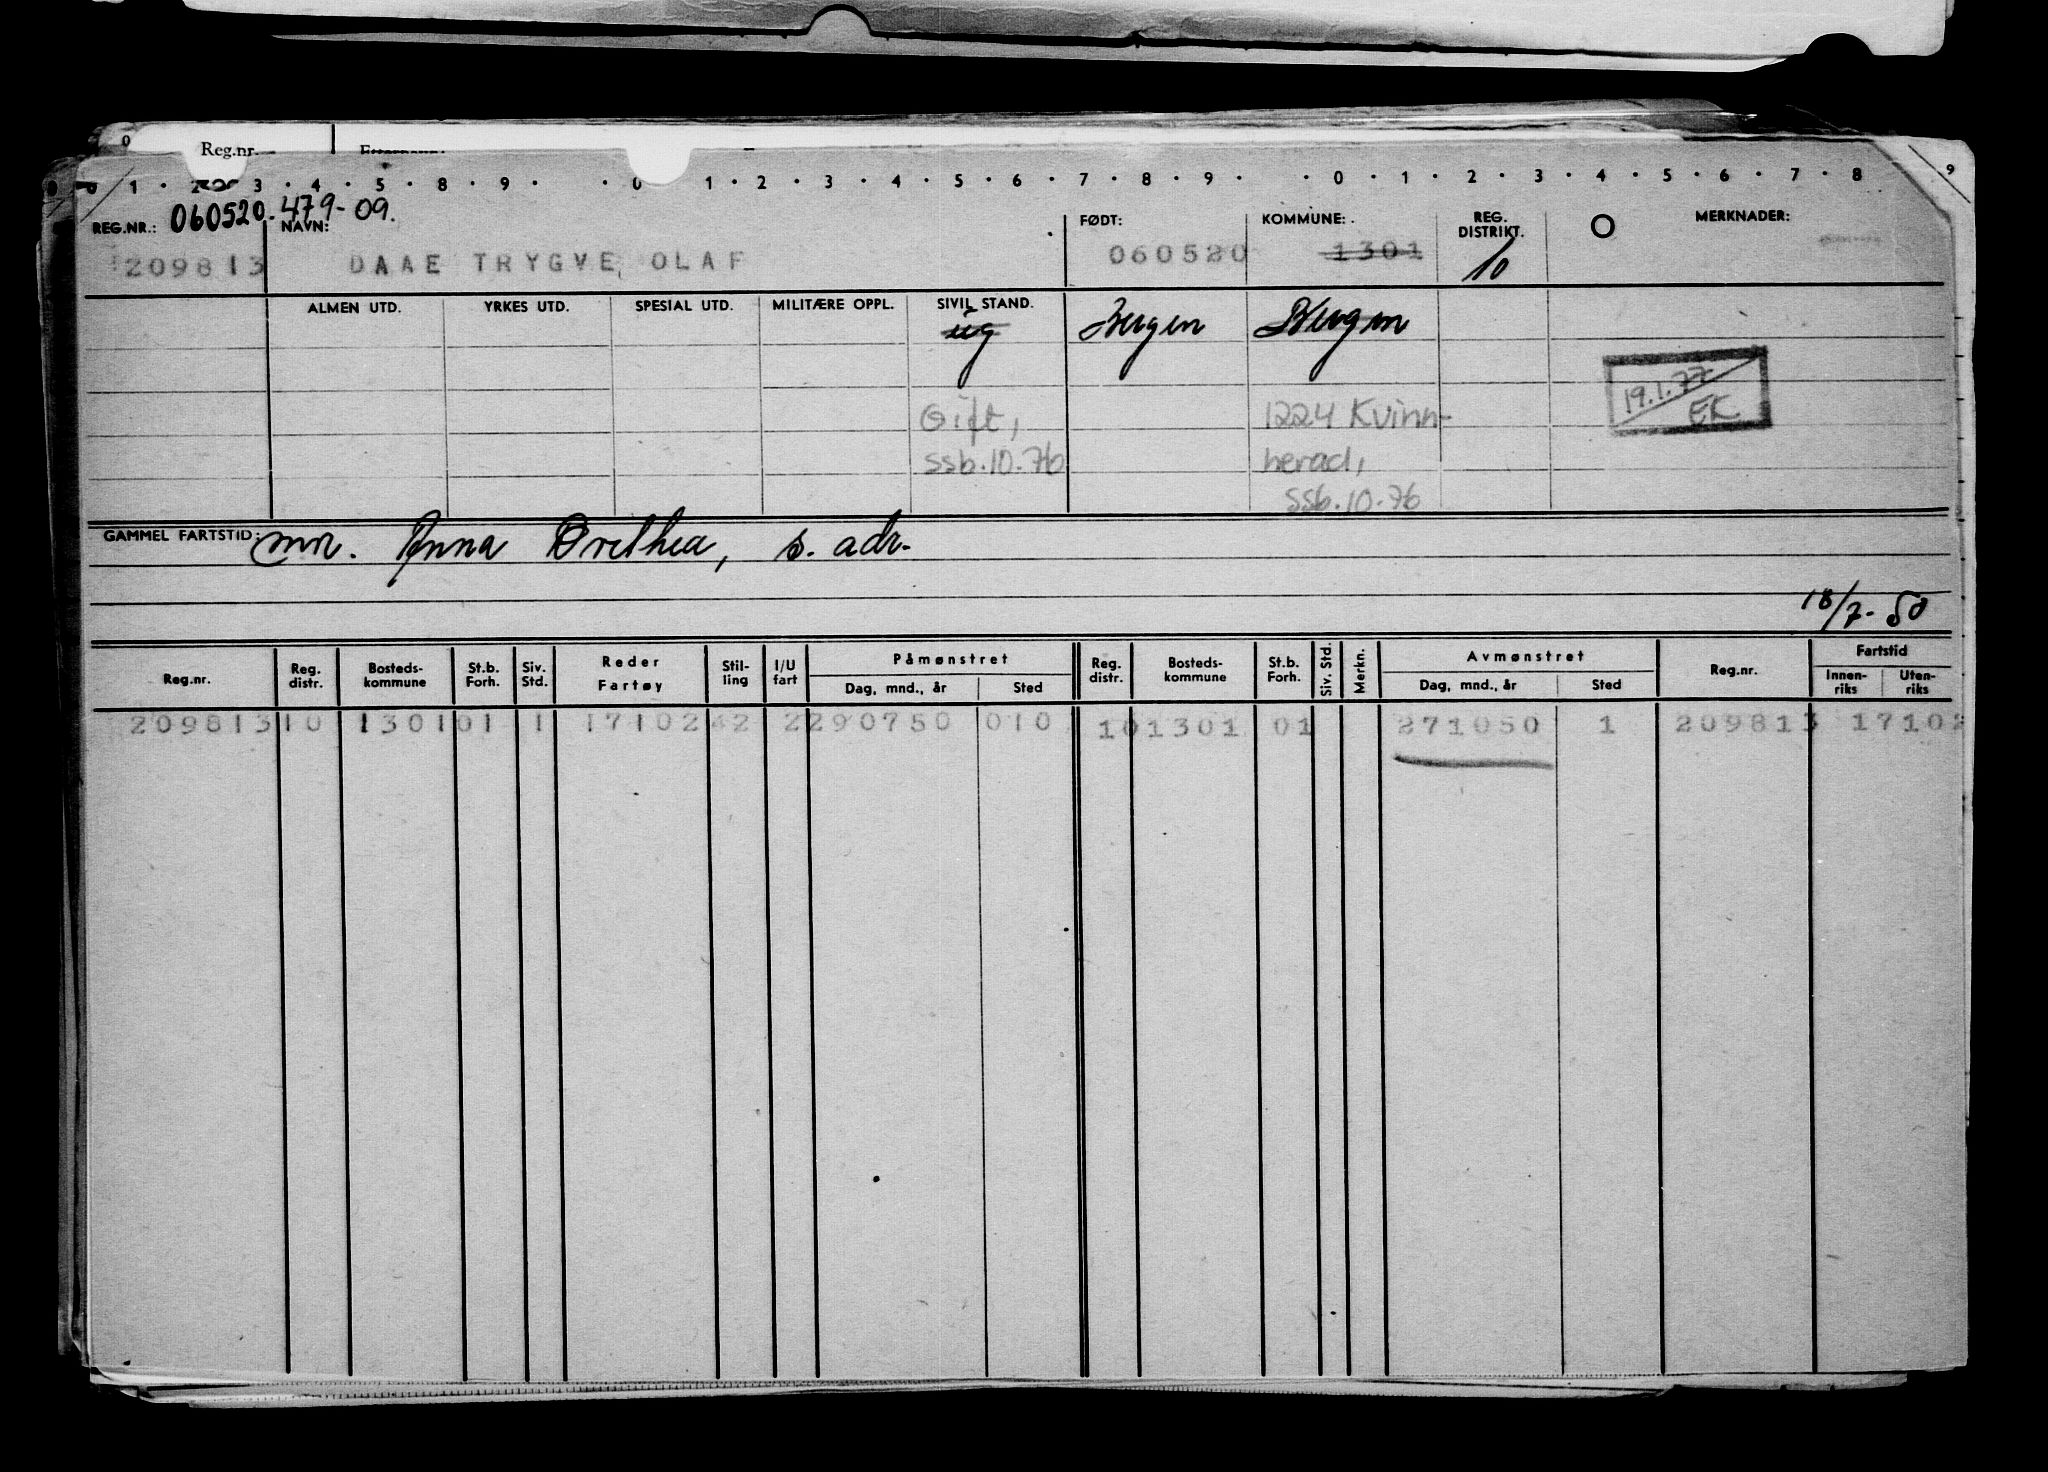 Reg.nr.
0 1 2 3 4 5 8 9 0 1 2 3 4 5 6 7 8 9 0 1 2 3 4 5 6 7 8 9
REG.NR.: 060520.479-09. NAVN: FØDT: KOMMUNE: REG. DISTRIKT. MERKNADER:
209813 DAAE TRYGVE OLAF 060520 1301 10
ALMEN UTD. YRKES UTD. SPESIAL UTD. MILITÆRE OPPL. SIVIL STAND.
ug Bergen Bergen
19.1.77
EK
Gift, 1224 Kvinn-
ssb.10.76 herad,
ssb.10.76
GAMMEL FARTSTID: mor. Anna Orethea, s. adr.
18/7-50
Reg.nr. Reg. distr. Bosteds-kommune St.b. Forh. Siv. Std. Reder Fartøy Stil-ling I/U fart Påmønstret Dag, mnd., år Sted Reg. distr. Bosteds-kommune St.b. Forh. Siv. Std. Merkn. Avmønstret Dag, mnd., år Sted Reg.nr. Fartstid Innen-riks Uten-riks
209813 10 1301 01 1 17102 42 2 290750 010 10 1301 01 271050 1 209813 17102